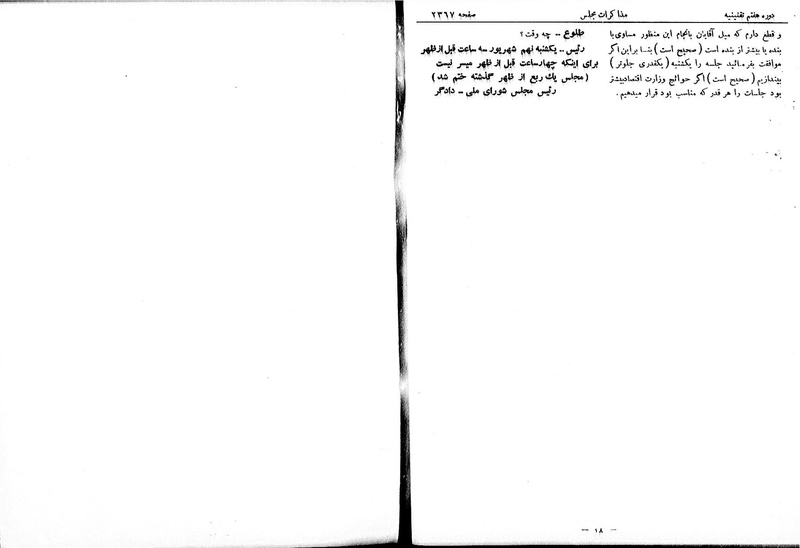 دوره هفتم تقنینیه
مذاکرات مجلس
صفحه ۲۳۶۷
و قطع دارم که میل آقایان بانجام این منظور مساوی با
بنده یا بیشتر از بنده است ( صحیح است ) بنا براین اگر
موافقت بفرمائید جلسه را یکشنبه ( یکقدری جلوتر )
بیندازیم ( صحیح است ) اگر حوائج وزارت اقتصاد بیشتر
بود جلسات را هر قدر که مناسب بود قرار میدهیم .
طلوع ــ چه وقت ؟
رئیس ــ یکشنبه نهم شهریور سه ساعت قبل از ظهر
برای اینکه چهار ساعت قبل از ظهر میسر نیست
( مجلس یک ربع از ظهر گذشته ختم شد )
رئیس مجلس شورای ملی ــ دادگر
— ۱۸ —